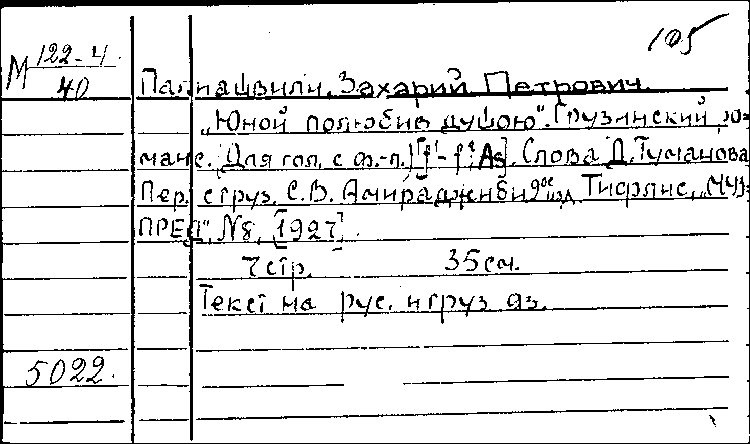 105
М 122-4
40
Палиашвили, Захарий Петрович.
„Юной полюбив душою". Грузинский ро-
манс. (Для гол. с ф.-п.) [f¹-f²; As]. Слова Д. Туманова
Пер. с груз. С.В. Амираджиби 2ое изд. Тифлис, „МУЗ-
ПРЕД", №8, [1927].
7 стр. 35 см.
Текст на рус. и груз яз.
5022.